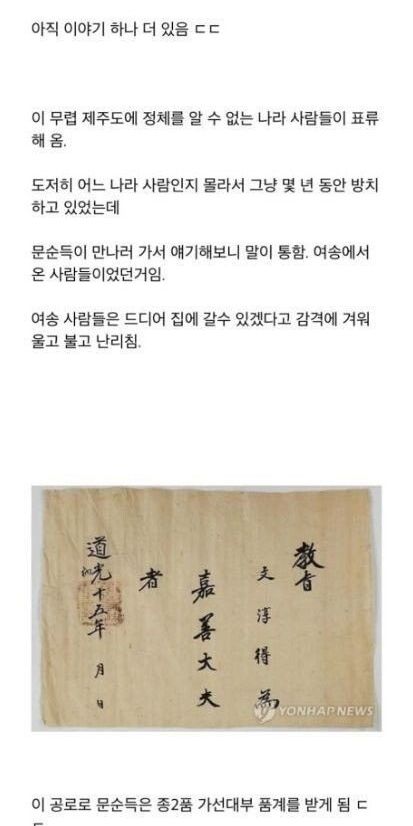 아직 이야기 하나 더 있음 ㄷㄷ
이 무렵 제주도에 정체를 알 수 없는 나라 사람들이 표류
해 옴.
도저히 어느 나라 사람인지 몰라서 그냥 몇 년 동안 방치
하고 있었는데
문순득이 만나러 가서 얘기해보니 말이 통함. 여송에서
온 사람들이었던거임.
여송 사람들은 드디어 집에 갈수 있겠다고 감격에 겨워
울고 불고 난리침.
教旨
文淳得為
嘉善大夫
者
道光十五年 月 日
YONHAPNEWS
이 공로로 문순득은 종2품 가선대부 품계를 받게 됨 ㄷ